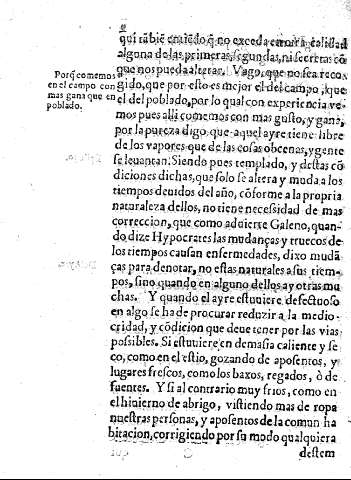 qui tãbiẽ entiẽdo q̃ no exceda en otra calidad
alguna de las primeras, segundas, ni secretas cõ
que nos pueda alterar. Vago, que no sea reco-
gido, que por esto es mejor el del campo, que
el del poblado, por lo qual con experiencia ve-
mos pues alli comemos con mas gusto, y gana,
por la pureza digo que aquel ayre tiene libre
de los vapores que de las cosas obcenas, y gente
se leuantan: Siendo pues templado, y destas cõ
diciones dichas, que solo se altera y muda a los
tiempos deuidos del año, cõforme a la propria
naturaleza dellos, no tiene necessidad de mas
correccion, que como aduierte Galeno, quan-
do dize Hypocrates las mudanças y truecos de
los tiempos causan enfermedades, dixo mudã
ças para denotar, no estas naturales a sus tiem-
pos, sino quando en alguno dellos ay otras mu
chas. Y quando el ayre estuuiere defectuoso
en algo se ha de procurar reduzir a la medio-
cridad, y cõdicion que deue tener por las vias
possibles. Si estuuiere en demasia caliente y se
co, como en el estio, gozando de aposentos, y
lugares frescos, como los baxos, regados, ò de
fuentes. Y si al contrario muy frios, como en
el hinierno de abrigo, vistiendo mas de ropa
nuestras personas, y aposentos de la comun ha
bitacion, corrigiendo por su modo qualquiera
destem
Porq̃ comemos
en el campo con
mas gana que en
poblado.